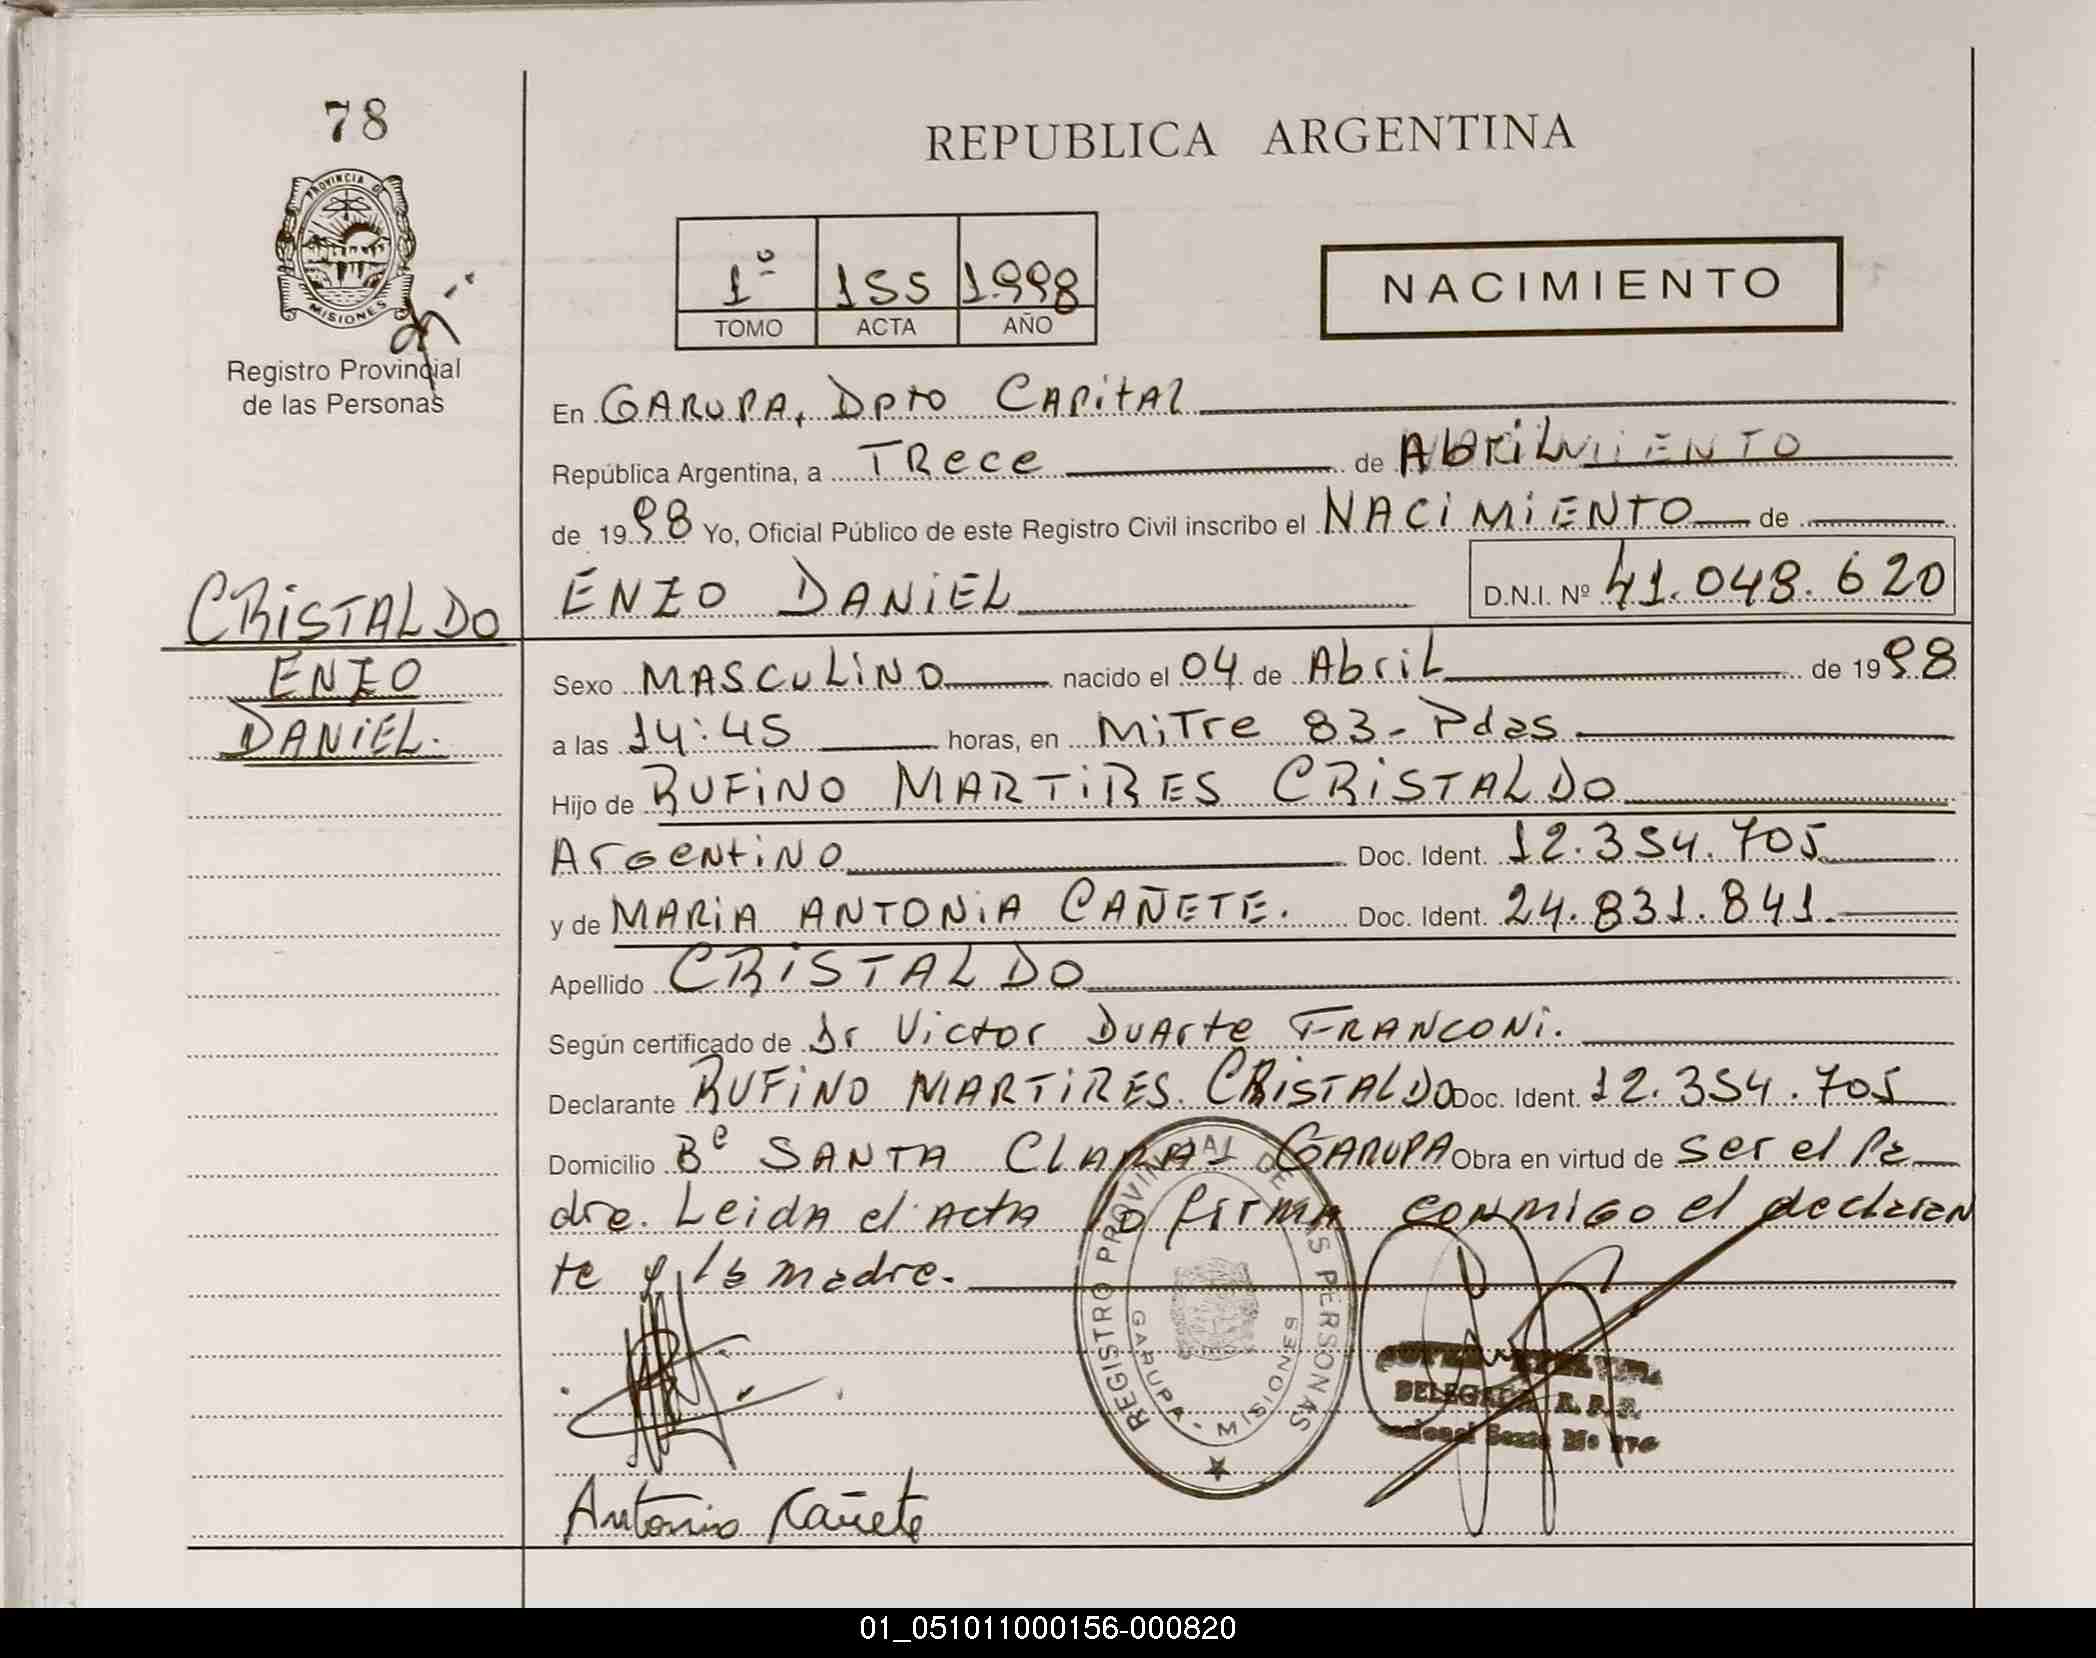 78
PROVINCIA DE
MISIONES
Registro Provincial
de las Personas
REPUBLICA ARGENTINA
1º 155 1.998
TOMO ACTA AÑO
NACIMIENTO
En GARUPA, Dpto CAPITAL
República Argentina, a TRece de AbRiL
de 1998 Yo, Oficial Público de este Registro Civil inscribo el NACIMIENTO de
ENZO DANIEL D.N.I. Nº 41.048.620
CRISTALDO
ENZO
DANIEL.
Sexo MASCULINO nacido el 04 de Abril de 1998
a las 14:45 horas, en MiTre 83- Pdas
Hijo de RUFINO MARTIRES CRISTALDO
ArgentiNO Doc. Ident. 12.354.705
y de MARIA ANTONIA CAÑETE. Doc. Ident. 24.831.841.
Apellido CRISTALDO
Según certificado de Dr Victor DUArte FRANCONI.
Declarante RUFINO MARTIRES. CRISTALDO Doc. Ident. 12.354.705
Domicilio Bº SANTA CLARA I GARUPA Obra en virtud de ser el Pa
dre. Leida el acta la firma conmigo el declaran
te y la madre.
REGISTRO PROVINCIAL DE LAS PERSONAS
GARUPA - MISIONES
DELEGADA R. P. P.
Antonia Cañete
01_051011000156-000820